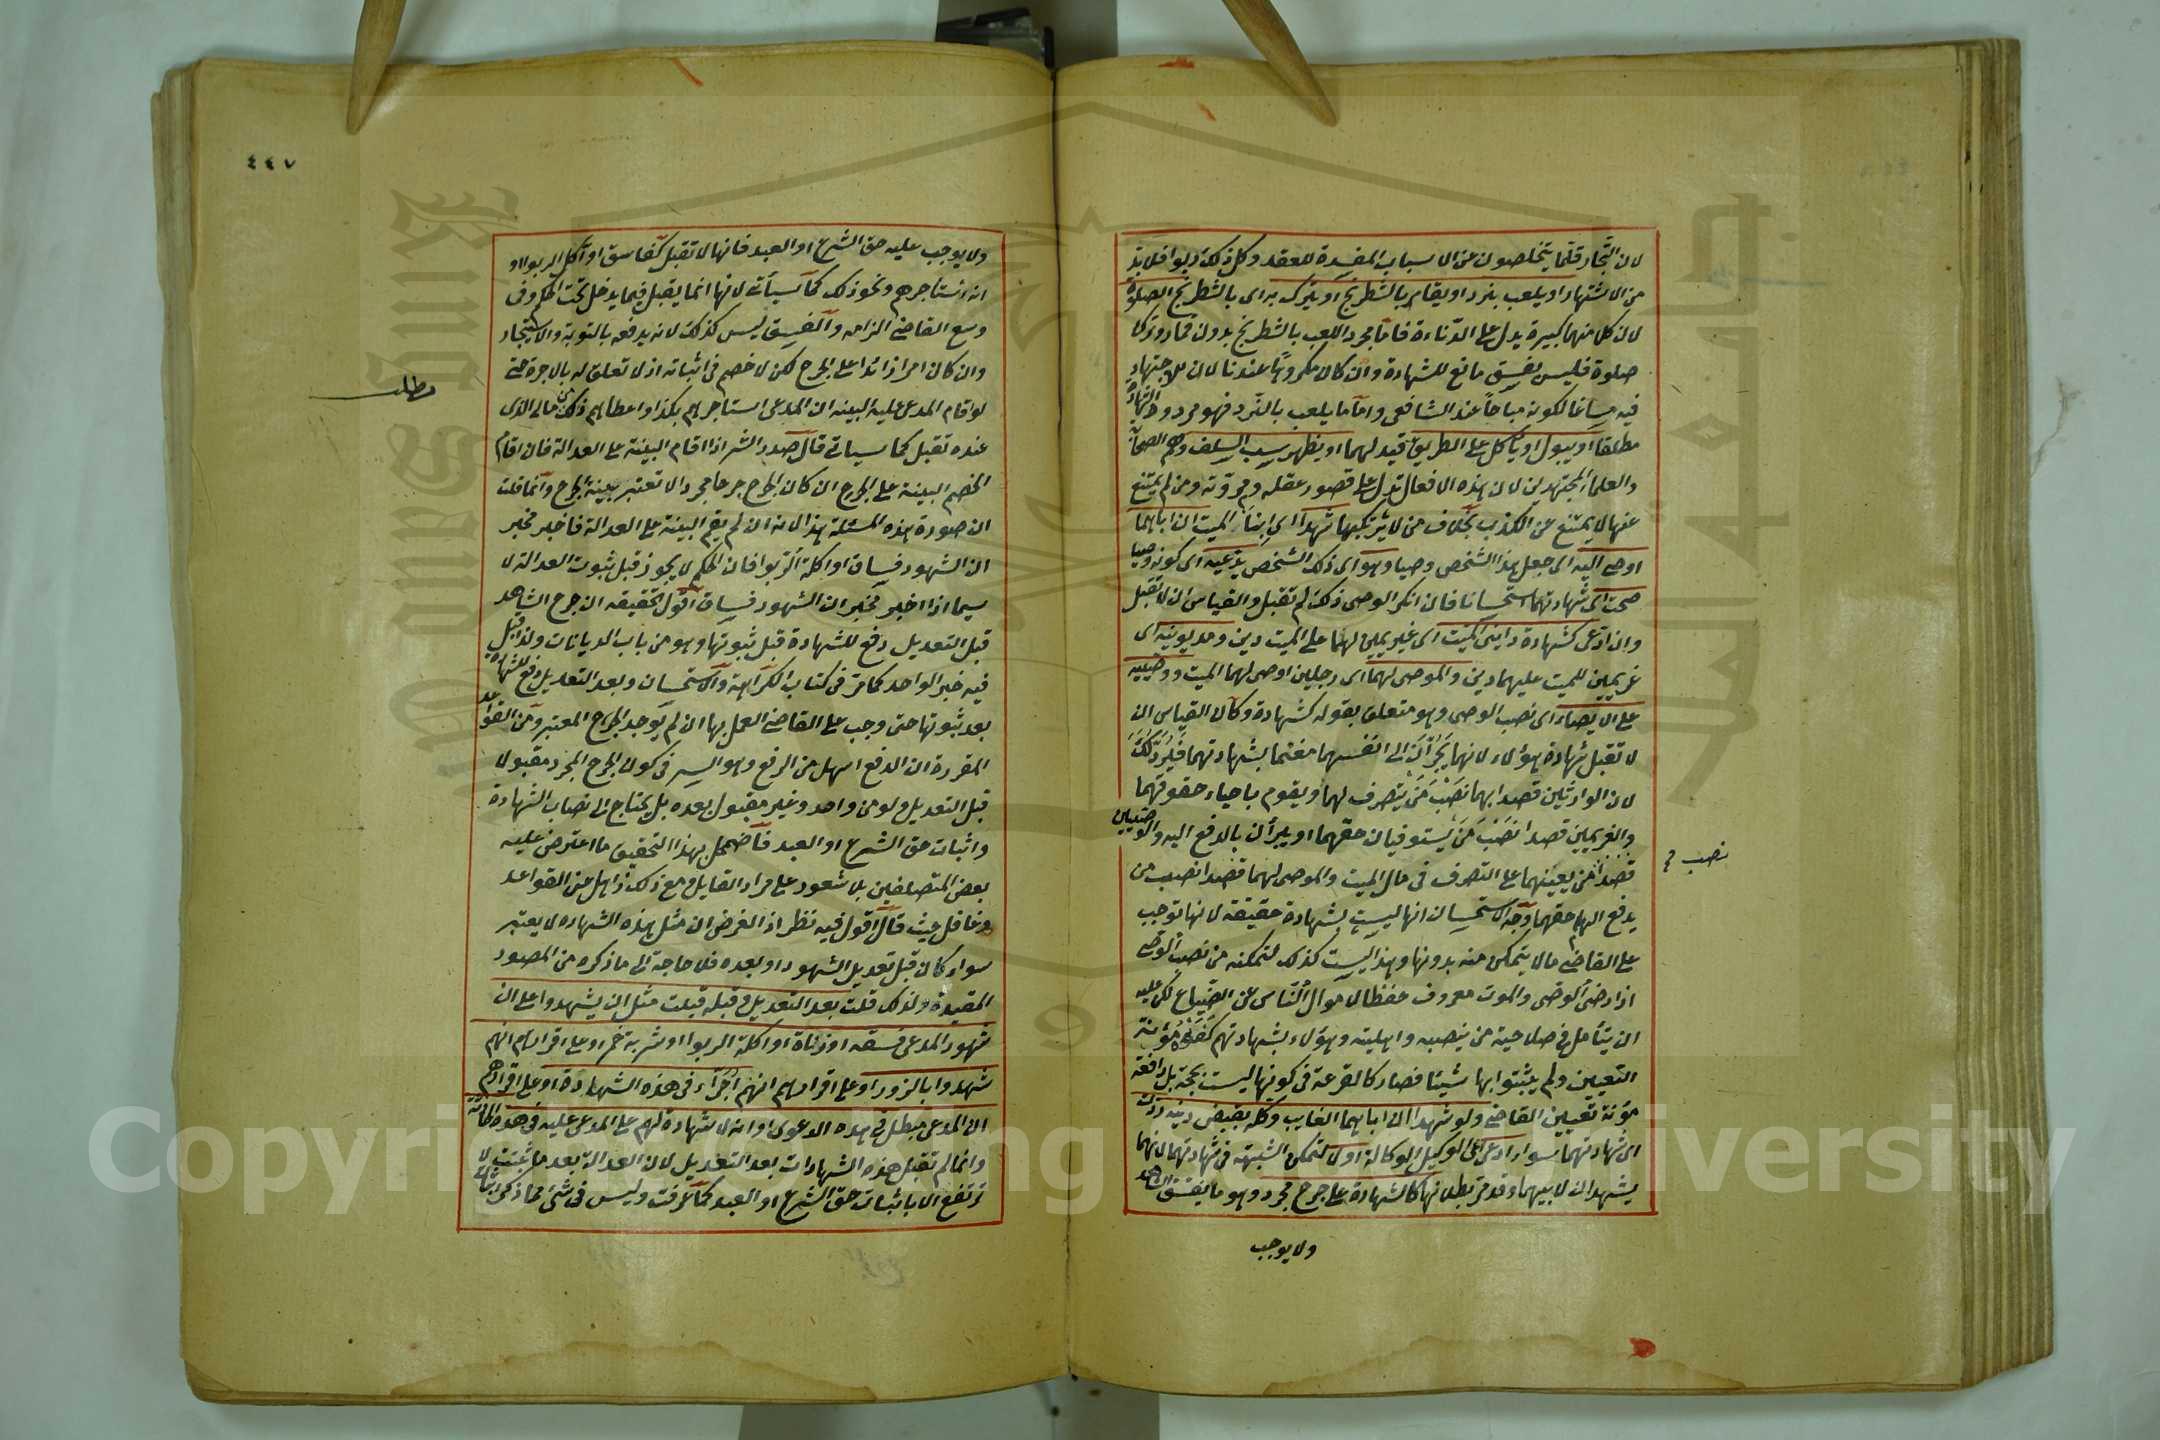 لان التجار قلما يتخلصون عن الاسباب المفسدة للعقد وكل ذلك ربوا فلا بد
من الاشتهار او يلعب بنرد او يقامر بالشطرنج او يترك به اى بالشطرنج الصلوة
لان كل منهما كبيرة يدل على الدناءة فاما مجرد اللعب بالشطرنج بدون قمار وترك
صلوة فليس بفسق مانع للشهادة وان كان مكروها عندنا لان للاجتهاد
فيه مساغا لكونه مباحا عند الشافعى واما ما يلعب بالنرد فهو مردود الشهادة
مطلقا او يبول او ياكل على الطريق قيد لهما او يظهر سب السلف وهم الصحابة
والعلماء المجتهدين لان هذه الافعال تدل على قصور عقله ومروته ومن لم يمتنع
عنها لا يمتنع عن الكذب بخلاف من لا يرتكبها شهدا اى ابنا الميت ان اباهما
اوصى اليه اى جعل هذا الشخص وصيا وهو اى ذلك الشخص يدعيه اى كونه وصيا
صحت اى شهادتهما استحسانا فان انكر الوصى ذلك لم تقبل والقياس ان لا تقبل
وان ادعى كشهادة داينى الميت اى غريمين لهما على الميت دين ومديونيه اى
غريمين للميت عليهما دين والموصى لهما اى رجلين اوصى لهما الميت ووصييه
على الايصاء اى نصب الوصى وهو متعلق بقوله كشهادة وكان القياس ان
لا تقبل شهادة هؤلاء لانهما يجران الى انفسهما مغنما بشهادتهما فيرد ذلك
لان الوارثين قصدا بهما نصب من يتصرف لهما ويقوم باحياء حقوقهما
والغريمين قصدا نصب من يستوفيان حقهما او يبرآن بالدفع اليه والوصيين
قصدا من يعينهما على التصرف فى مال الميت والموصى لهما قصدا نصب من
نصب
يدفع اليهما حقهما وجه الاستحسان انها ليست بشهادة حقيقة لانها توجب
على القاضى ما لا يتمكن منه بدونها وهذا ليست كذلك لتمكنه من نصب الوصى
اذا رضى الوصى والموت معروف حفظا لاموال الناس عن الضياع لكن عليه
ان يتامل فى صلاحية من ينصبه واهليته وهؤلاء بشهادتهم كفوه مؤنة
التعيين ولم يثبتوا بها شيئا فصار كالقرعة فى كونها ليست بحجة بل دافعة
مؤنة تعيين القاضى ولو شهدا ان اباهما الغايب وكله بقبض دينه ردت
اى شهادتهما سواء ادعى الوكيل الوكالة او لا لتمكن الشبهة فى شهادتهما لانهما
يشهدان لابيهما وقد مر بطلانها كالشهادة على جرح مجرد وهو ما يفسق الشاهد
ولا يوجب
٤٤٧
ولا يوجب عليه حق الشرع او العبد فانها لا تقبل كفاسق او آكل الربوا او
انه استاجرهم ونحو ذلك كما سيأتى لانها انما يقبل فيما يدخل تحت الحكم وفى
وسع القاضى الزامه والفسق ليس كذلك لانه يدفعه بالتوبة والاستيجار
وان كان امرا زائدا على الجرح لكن لا خصم فى اثباته اذ لا تعلق له بالاجرة حتى
مطلب
لو اقام المدعى عليه البينه ان المدعى استاجرهم بكذا واعطاهم ذلك من مالى الذى
عنده تقبل كما سياتى قال صدر الشر اذا اقام البينة على العدالة فان اقام
الخصم البينة على الجرح ان كان الجرح جرحا مجردا لا تعتبر بينة الجرح وانما قلت
ان صورة هذه المسئلة هذا لانه ان لم يقم البينة على العدالة فاخبر مخبر
ان الشهود فساق او اكلة الربوا فان الحكم لا يجوز قبل ثبوت العدالة لا
سيما اذا اخبر مخبر ان الشهود فساق اقول تحقيقه ان جرح الشاهد
قبل التعديل دفع للشهادة قبل ثبوتها وهو من باب الديانات ولذا قبل
فيه خبر الواحد كما مر فى كتاب الكراهة والاستحسان وبعد التعديل رفع للشهادة
بعد ثبوتها حتى وجب على القاضى العمل بها ان لم يوجد الجرح المعتبر ومن القواعد
المقررة ان الدفع اسهل من الرفع وهو السر فى كون الجرح المجرد مقبولا
قبل التعديل ولو من واحد وغير مقبول بعده بل يحتاج الى نصاب الشهادة
واثبات حق الشرع او العبد فاضمحل بهذا التحقيق ما اعترض عليه
بعض المتصلفين بلا شعور على مراد القايل ومع ذلك ذاهل عن القواعد
وغافل حيث قال اقول فيه نظر اذ الغرض ان مثل هذه الشهاده لا يعتبر
سواء كان قبل تعديل الشهود او بعده فلا حاجة الى ما ذكره من الصور
المقيدة ولذلك قلت بعد التعديل وقبله قبلت مثل ان يشهدوا على ان
شهود المدعى فسقه او زناة او اكلة الربوا او شربة خمر او على اقرارهم انهم
شهدوا بالزور او على اقرارهم انهم اجراء فى هذه الشهادة او على اقرارهم
ان المدعى مبطل فى هذه الدعوى او انه لا شهادة لهم على المدعى عليه فى هذه الحادثة
وانما لم تقبل هذه الشهادات بعد التعديل لان العدالة بعد ما ثبتت لا
ترتفع الا باثبات حق الشرع او العبد كما عرفت وليس فى شئ مما ذكر اثبات
Copyright © King Saud University